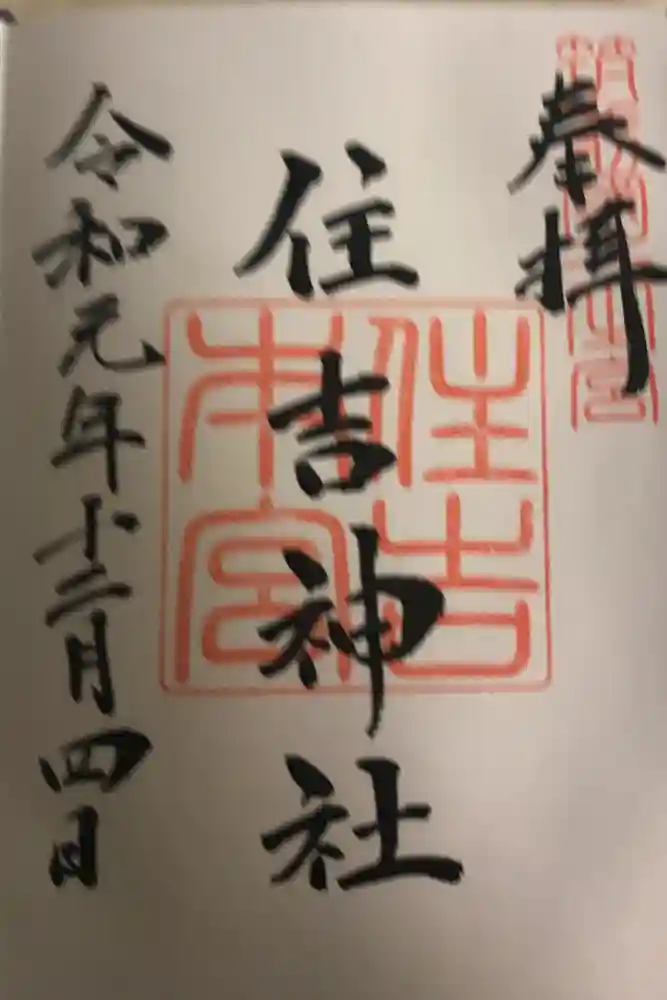 奉拝
住吉神社
住吉本宮
令和元年十二月四日